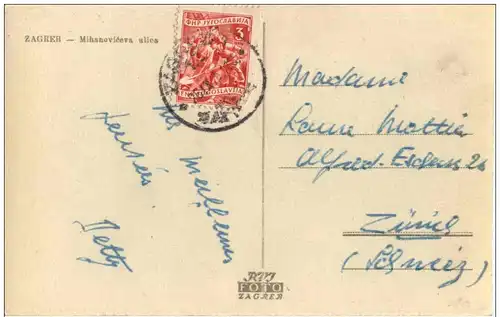 ZAGREB — Mihanovićeva ulica
ФНР ЈУГОСЛАВИЈА
3
FNR JUGOSLAVIJA
Mes
meilleures
pensées
Betty
Madame
Laure Mattia
Alfred-Escherstr. 26
Zürich
(Schweiz)
FOTO
ZAGREB